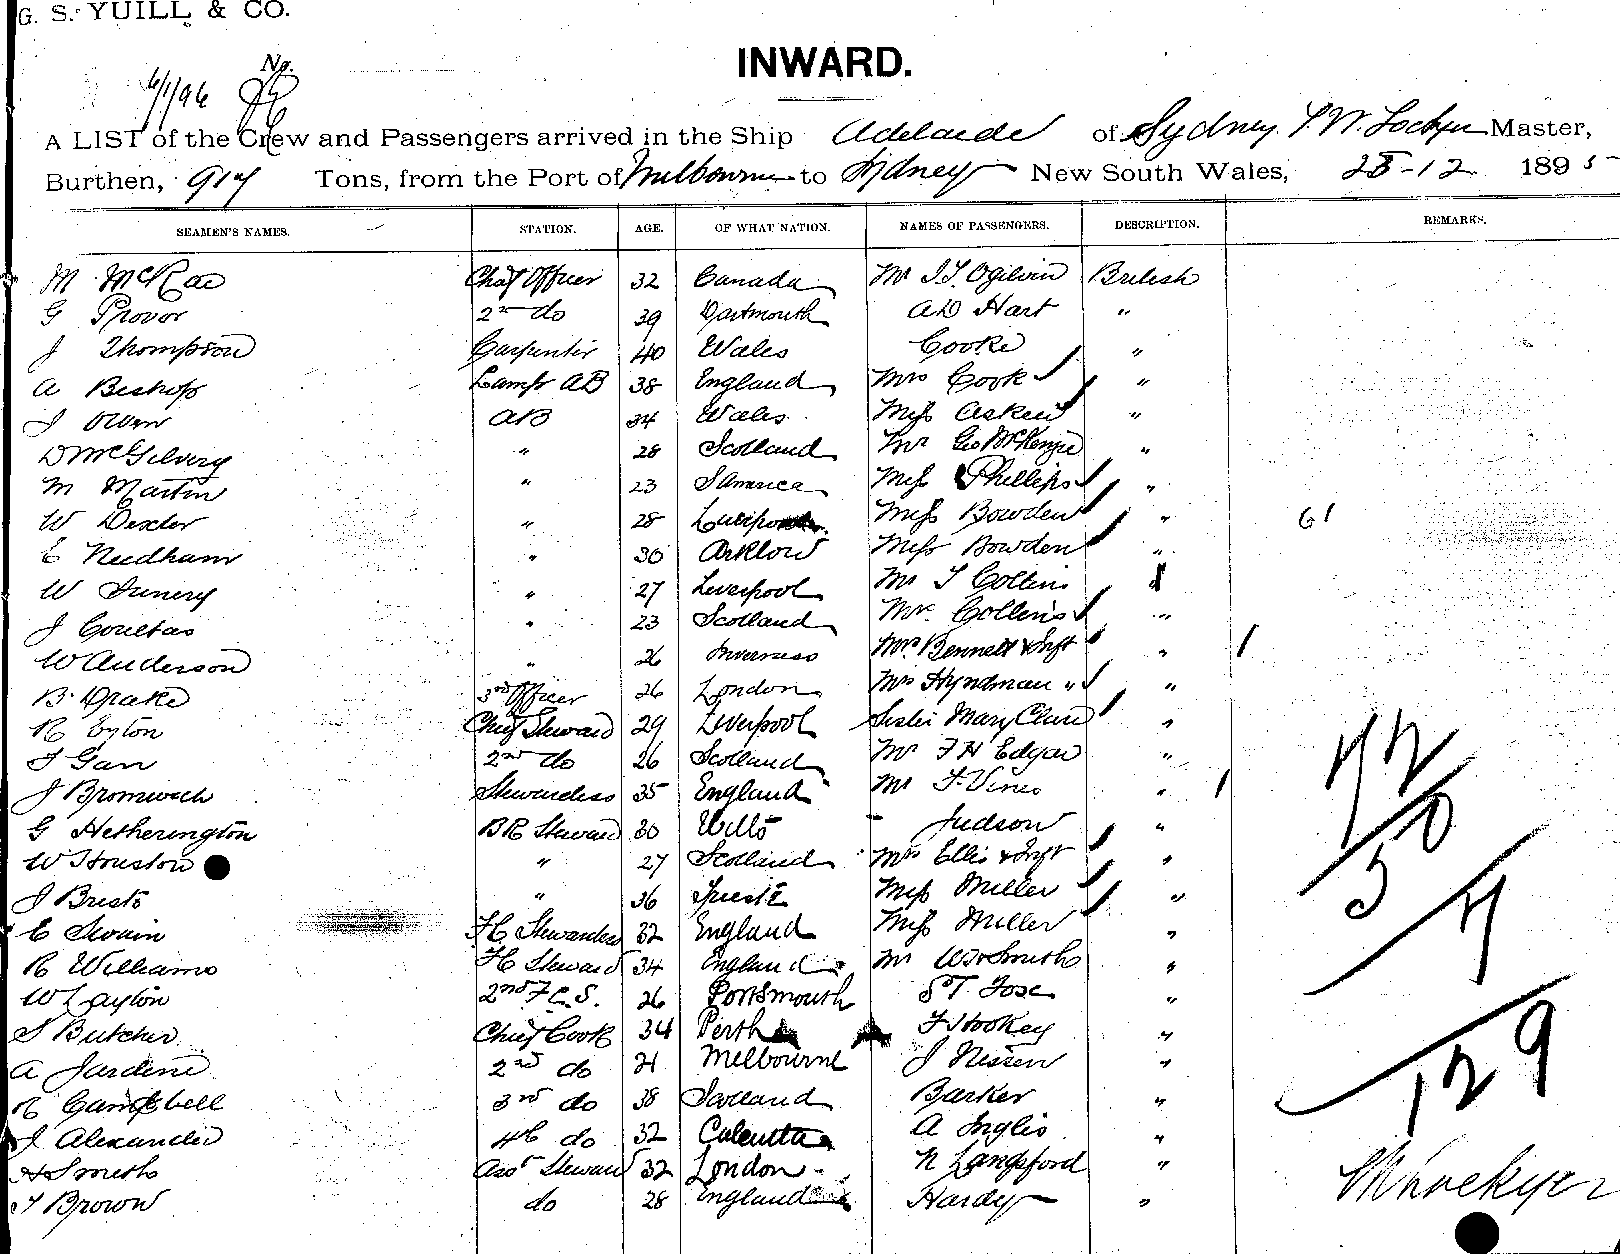 G. S. YUILL & CO.
INWARD.
No.
6/1/96
A LIST of the Crew and Passengers arrived in the Ship Adelaide of Sydney Master,
Burthen, 917 Tons, from the Port of Melbourne to Sydney New South Wales, 28-12 1895
SEAMEN'S NAMES. STATION. AGE. OF WHAT NATION. NAMES OF PASSENGERS. DESCRIPTION. REMARKS.
M McRae Chief Officer 32 Canada Mr Ogilvin British
G Provor 2nd do 39 Dartmouth AD Hart "
J Thompson Carpenter 40 Wales Cooke "
A Bishop Lamps AB 38 England Mrs Cook "
J Owen AB 34 Wales Miss Askew "
D McGilvery " 28 Scotland Mr Geo McKenzie "
M Martin " 23 Jamaica Miss Phillips "
W Dexter " 28 Miss Bowden " 61
E Needham " 30 Arklow Miss Bowden "
W " 27 Liverpool Mr T Collins
J Coultas " 23 Scotland Mr Collins "
W Anderson " 26 Inverness Mrs Bennett & Inft "
B Drake 3rd Officer 26 London Mrs Hyndman " "
R Eyton Chief Steward 29 Liverpool Sister Mary Clare "
J Gan 2nd do 26 Scotland Mr F H Edgar "
J Bromwich Stewardess 35 England Mr F Vines "
G Hetherington BR Steward 30 Wilts Judson "
W Houston " 27 Scotland Mrs Ellis & Inft "
J Bristo " 36 Trieste Miss Miller "
E Swain FC Stewardess 32 England Miss Miller "
R Williams FC Steward 34 England Mr Wm Smith "
W Layton 2nd F.C.S. 26 Portsmouth "
S Butcher Chief Cook 34 Perth F Hookey "
A Jardine 2nd do 21 Melbourne J Nissen "
R Campbell 3rd do 38 Barker "
J Alexander 4th do 32 Calcutta A Inglis "
H Smith Asst Steward 32 London N Langsford "
T Brown do 28 England Hardy "
72
50
7
129